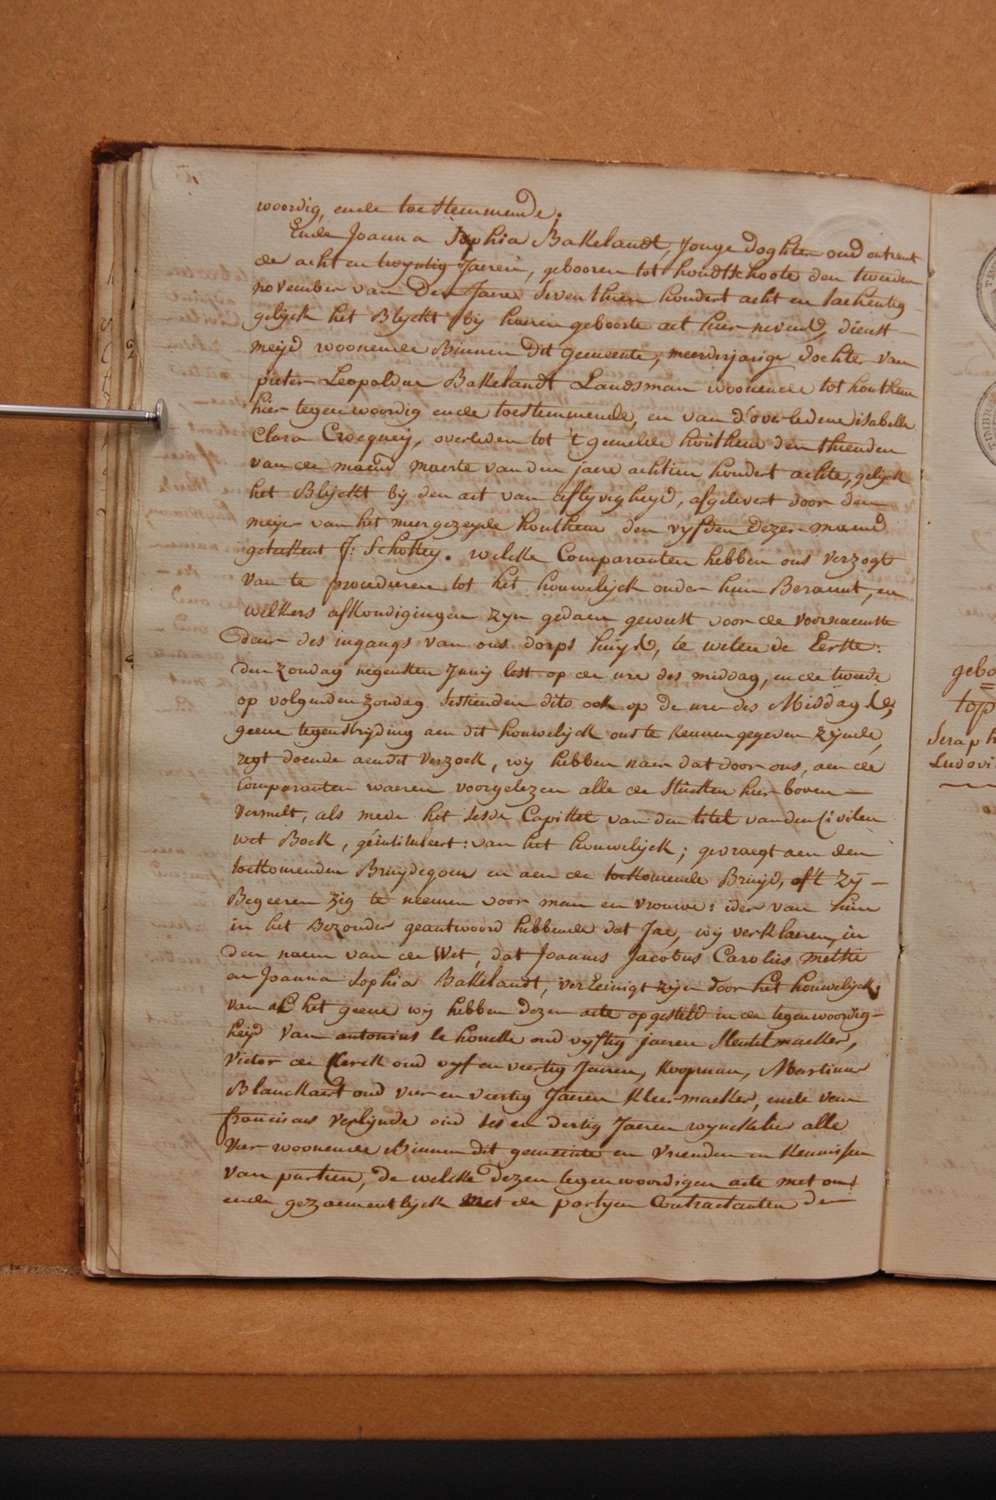 woordig, ende toestemmende.
Ende Joanna Sophia Bakelandt, Jonge Doghter oud ontrent
de acht en twyntig Jaeren, gebooren tot hondtschoote den tweeden
november van den Jaere seventhien hondert acht en tachentig
gelyck het Blyckt by haeren geboorte act hier nevens, dienst
meijd woonende Binnen dit gemeente, meerderjarige dochte van
pieter Leopoldus Bakelandt Landsman woonende tot houthem
hier tegenwoordig ende toestemmende, en van d'overledene isabelle
Clara Crocqueij, overleden tot 't gemelde houthem den thienden
van de maend maerte van den jaere achtien hondert achte, gelyck
het Blyckt bij den act van aflyvigheyd, afgelevert door den
meyer van het meergezeyde houthem den vyfden dezer maend
geteekent J: Schottey. welcke Comparanten hebben ons verzogt
van te procederen tot het houwelijck onder hun Beraemt, en
welkers afkondigingen zyn gedaen geweest voor de voornaemste
deur des ingangs van ons dorps huys, te weten de Eerste:
den zondag negensten Junij lest op de ure des middag, en de tweede
op volgenden zondag sesthienden dito ook op de ure des Middag
geene tegenstryding aen dit houwelijck ons te kennen gegeven zynde,
regt doende aen dit verzoek, wy hebben naer dat door ons, aen de
Comparanten waeren voorgelezen alle de stucken hier boven
vermelt, als mede het sesde Capittel van den titel van den Civilen
wet Boek, geïntituleert: van het houwelijck; gevraegt aen den
toekomenden Bruydegom en aen de toekomende Bruyd, oft zy
Begeeren zig te neemen voor man en vrouwe: ider van hun
in het Bezonder geantwoord hebbende dat Jae, wy verklaeren, in
den naem van de Wet, dat Joannes Jacobus Carolus
en Joanna Sophia Bakelandt, vereenigt zyn door het houwelijck,
van al het geene wy hebben dezen acte opgesteld in de tegenwoordig-
heyd van antonius le houcke oud vyftig jaeren sleutelmaeker,
Victor de Klerck oud vyf en veertig Jaeren, koopman, Martinus
Blanckaert oud vier en veertig Jaeren kleermaeker, ende van
franciscus verlynde oud ses en dertig Jaeren wynckelier alle
vier woonende Binnen dit gemeente en vrienden en kennissen
van partien, de welcke dezen tegenwoordigen acte met ons
ende gezaementlyck met de partyen Contractanten de
gebo
top
Seraph
Ludovi